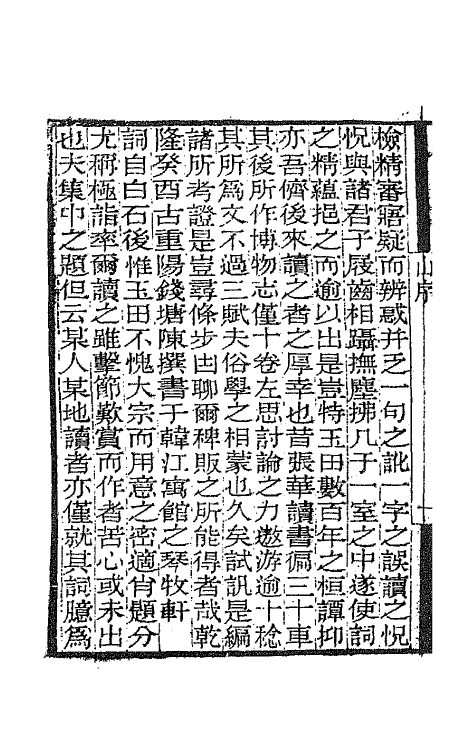 檢精審寤疑而辨惑并乏一句之訛一字之誤讀之怳
怳與諸君子屐齒相躡撫塵拂几于一室之中遂使詞
之精蘊挹之而逾以出是豈特玉田數百年之桓譚抑
亦吾儕後來讀之者之厚幸也昔張華讀書徧三十車
其後所作博物志僅十卷左思討論之力遨游逾十稔
其所爲文不過三賦夫俗學之相蒙也久矣試訊是編
諸所考證是豈尋條步甴聊爾稗販之所能得者哉乾
隆癸酉古重陽錢塘陳撰書于韓江寓館之琴牧軒
詞自白石後惟玉田不愧大宗而用意之密適肖題分
尤稱極詣率爾讀之雖擊節歎賞而作者苦心或未出
也夫集中之題但云某人某地讀者亦僅就其詞臆爲
山序